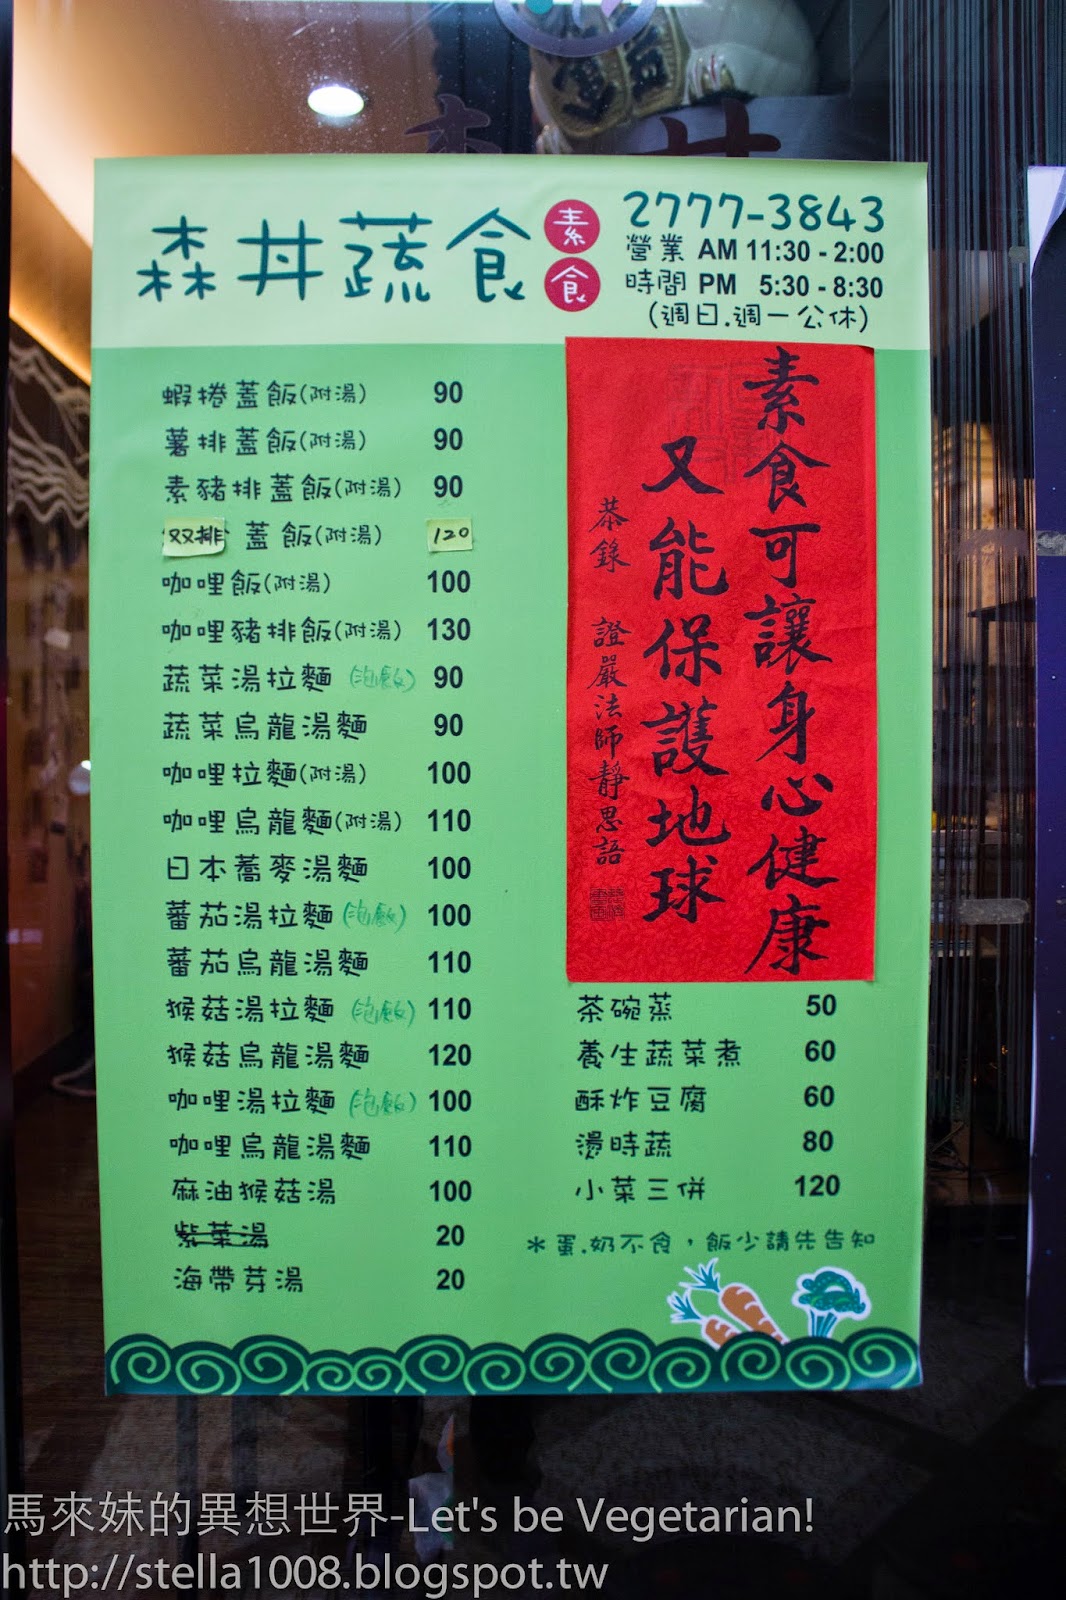 森丼蔬食
素食
2777-3843
營業 AM 11:30 - 2:00
時間 PM 5:30 - 8:30
(週日.週一公休)
蝦捲蓋飯(附湯) 90
薯排蓋飯(附湯) 90
素豬排蓋飯(附湯) 90
双排 蓋飯(附湯) 120
咖哩飯(附湯) 100
咖哩豬排飯(附湯) 130
蔬菜湯拉麵 (泡飯) 90
蔬菜烏龍湯麵 90
咖哩拉麵(附湯) 100
咖哩烏龍麵(附湯) 110
日本蕎麥湯麵 100
蕃茄湯拉麵 (泡飯) 100
蕃茄烏龍湯麵 110
猴菇湯拉麵 (泡飯) 110
猴菇烏龍湯麵 120
咖哩湯拉麵 (泡飯) 100
咖哩烏龍湯麵 110
麻油猴菇湯 100
紫菜湯 20
海帶芽湯 20
素食可讓身心健康
又能保護地球
恭錄 證嚴法師靜思語
茶碗蒸 50
養生蔬菜煮 60
酥炸豆腐 60
燙時蔬 80
小菜三併 120
＊蛋.奶不食，飯少請先告知
馬來妹的異想世界-Let's be Vegetarian!
http://stella1008.blogspot.tw